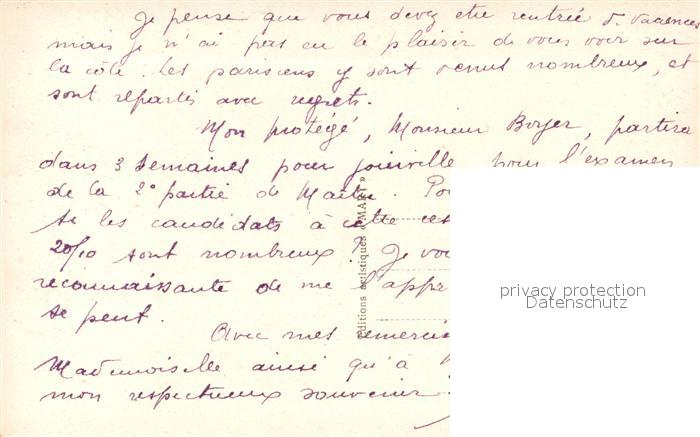 Je pense que vous devez etre rentrée de vacances
mais je n'ai pas eu le plaisir de vous voir sur
la côte. Les parisiens y sont venus nombreux, et
sont repartis avec regrets.
Mon protégé, Monsieur Boyer, partira
dans 3 semaines pour Joinville pour l'examen
de la 2° partie de
si les candidats à cette
20/10 sont nombreux? Je
reconnaissante de me
se peut.
Avec mes
Mademoiselle ainsi qu'à
mon respectueux souvenir.
Editions artistiques "MAR"
privacy protection
Datenschutz